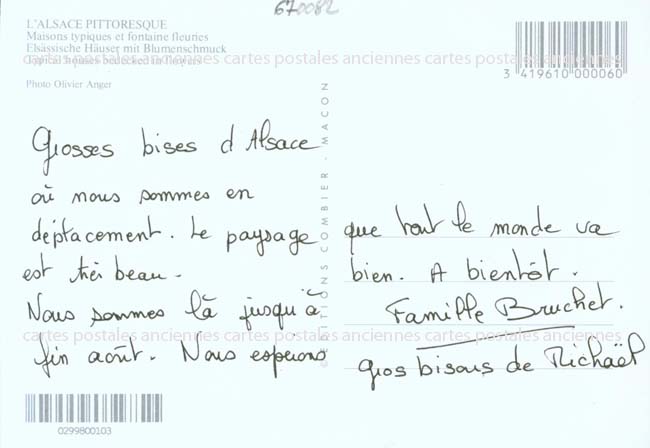 670082
L'ALSACE PITTORESQUE
Maisons typiques et fontaine fleuries
Elsässische Häuser mit Blumenschmuck
Typical houses bedecked in flowers
cartes postales anciennes cartes postales anciennes cartes postales anciennes cartes
Photo Olivier Anger
3 419610 000060
EDITIONS COMBIER - MACON
Grosses bises d'Alsace
où nous sommes en
déplacement. Le paysage
est très beau.
Nous sommes là jusqu'à
fin août. Nous esperons
que tout le monde va
bien. A bientôt.
Famille Bruchet.
gros bisous de
cartes postales anciennes cartes postales anciennes cartes postales anciennes cartes
0299800103